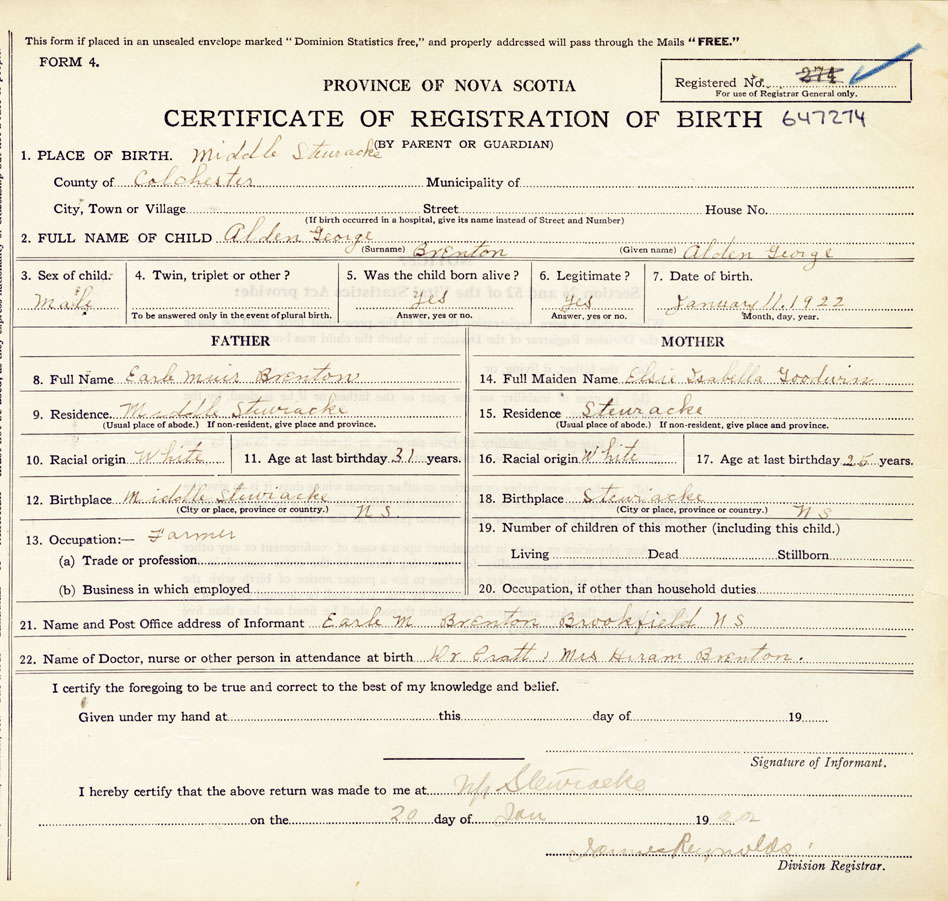 This form if placed in an unsealed envelope marked "Dominion Statistics free," and properly addressed will pass through the Mails "FREE."
FORM 4.
Registered No. 274
For use of Registrar General only.
PROVINCE OF NOVA SCOTIA
CERTIFICATE OF REGISTRATION OF BIRTH 647274
(BY PARENT OR GUARDIAN)
1. PLACE OF BIRTH. Middle Stewiacke
County of Colchester Municipality of
City, Town or Village Street House No.
(If birth occurred in a hospital, give its name instead of Street and Number)
2. FULL NAME OF CHILD Alden George
(Surname) Brenton (Given name) Alden George
3. Sex of child. 4. Twin, triplet or other? 5. Was the child born alive? 6. Legitimate? 7. Date of birth.
Male Yes Yes January 11. 1922
To be answered only in the event of plural birth. Answer, yes or no. Answer, yes or no. Month, day, year.
FATHER MOTHER
8. Full Name Earle Muir Brenton 14. Full Maiden Name Elsie Isabella Goodwin
9. Residence. Middle Stewiacke 15. Residence Stewiacke
(Usual place of abode.) If non-resident, give place and province. (Usual place of abode.) If non-resident, give place and province.
10. Racial origin White 11. Age at last birthday 31 years. 16. Racial origin White 17. Age at last birthday 25 years.
12. Birthplace Middle Stewiacke 18. Birthplace Stewiacke
(City or place, province or country.) N S (City or place, province or country.) N S
13. Occupation:— Farmer 19. Number of children of this mother (including this child.)
(a) Trade or profession Living Dead Stillborn
(b) Business in which employed 20. Occupation, if other than household duties
21. Name and Post Office address of Informant Earle M Brenton Brookfield N S
22. Name of Doctor, nurse or other person in attendance at birth Dr Pratt, Mrs Hiram Brenton.
I certify the foregoing to be true and correct to the best of my knowledge and belief.
Given under my hand at this day of 19
Signature of Informant.
I hereby certify that the above return was made to me at Stewiacke
on the 20 day of Jan 19 22
James Reynolds
Division Registrar.